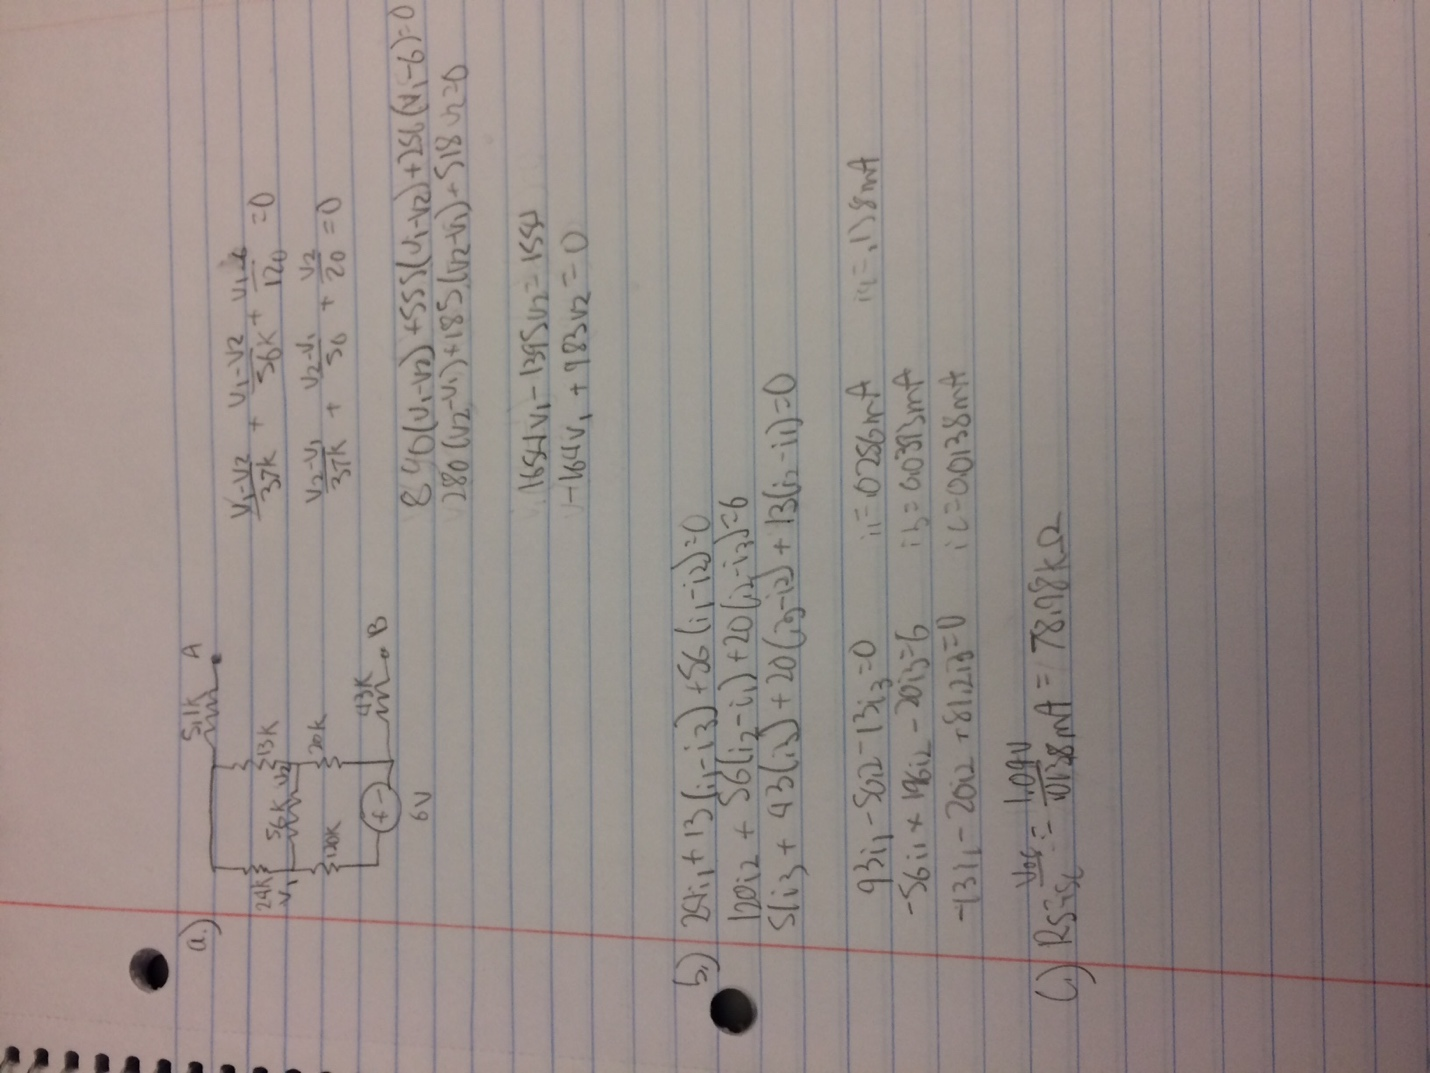 a.)
51k A
24k 13k
V1 56k V2
120k 20k
43k B
+ -
6V
V1-V2/37k + V1-V2/56k + V1-6/120 = 0
V2-V1/37k + V2-V1/56 + V2/20 = 0
840(V1-V2)+555(V1-V2)+256(V1-6)=0
280(V2-V1)+185(V2-V1)+518V2=0
1654V1-1395V2=1554
-464V1+983V2=0
b.) 24i1+13(i1-i3)+56(i1-i2)=0
120i2+56(i2-i1)+20(i2-i3)=6
51i3+43(i3)+20(i3-i2)+13(i3-i1)=0
93i1-56i2-13i3=0 i1=.0286mA
-56i1+196i2-20i3=6 i3=0.0393mA
-13i1-20i2+81i2i3=0 i2=0.0138mA
c.) RS= Voc/isc = 1.09V/.0138mA = 78.98kΩ